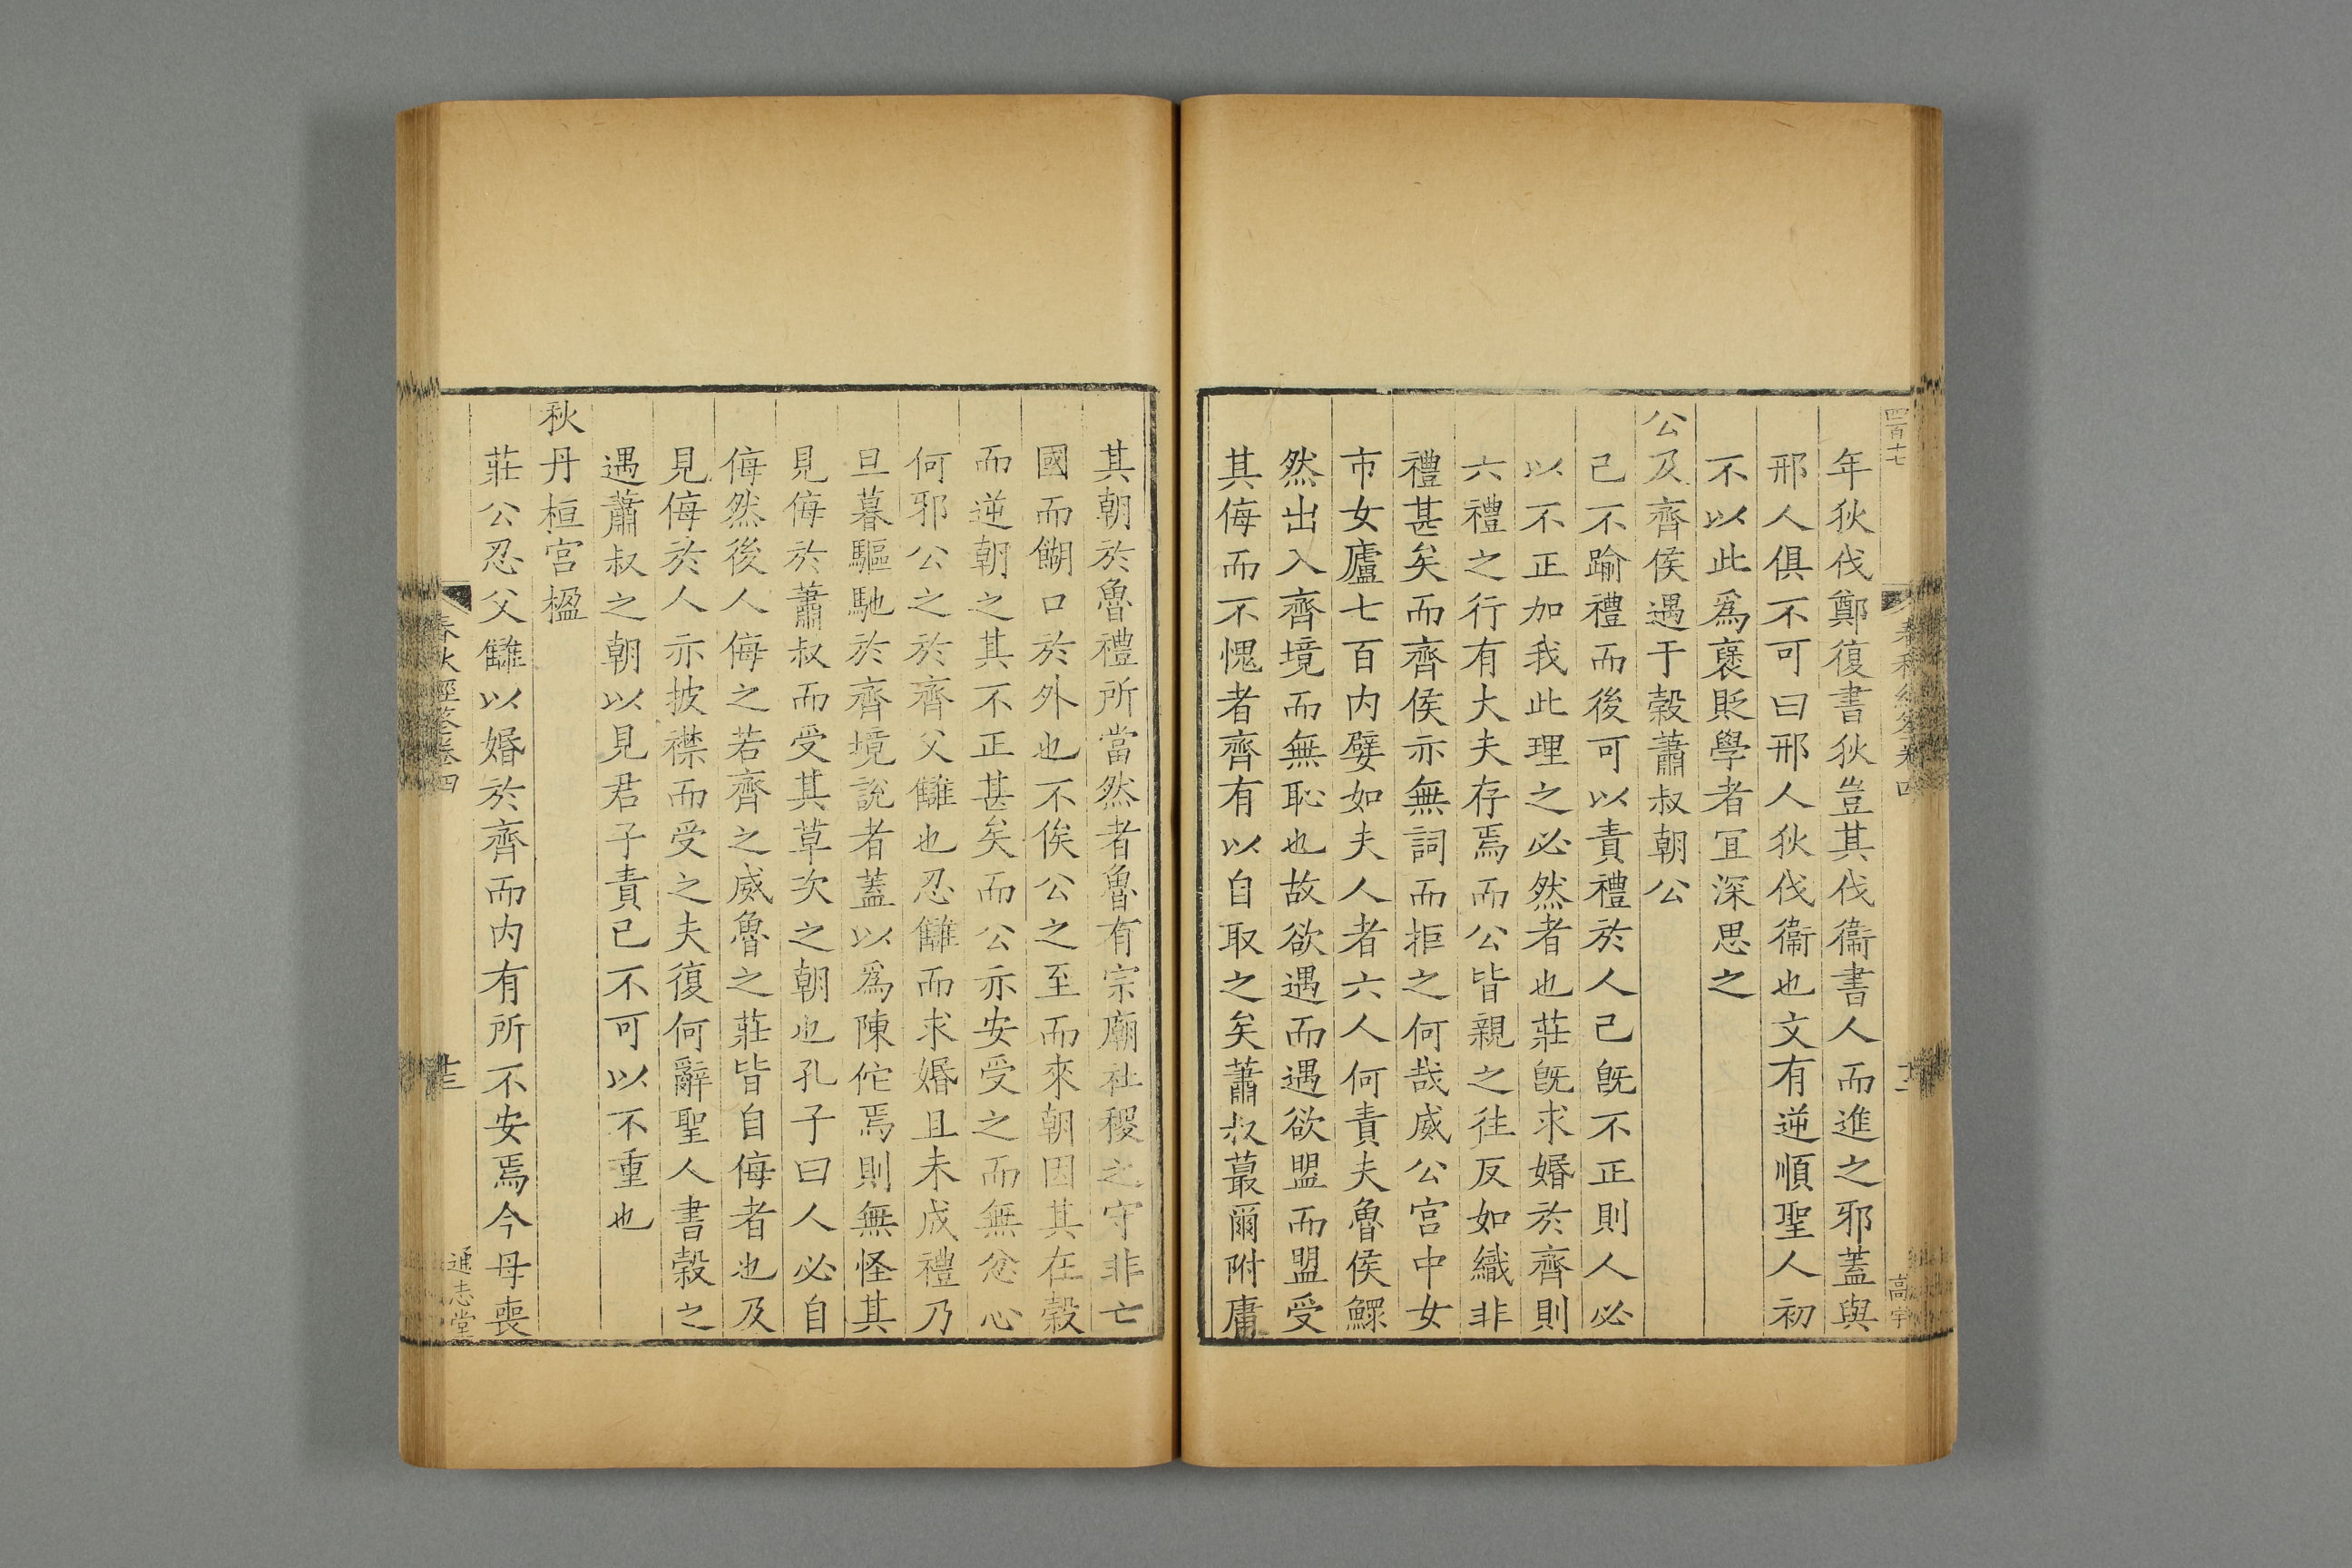 四百十七
春秋經筌卷四
十二
高宇
年狄伐鄭復書狄豈其伐衞書人而進之邪蓋與
邢人俱不可曰邢人狄伐衞也文有逆順聖人初
不以此爲襃貶學者宜深思之
公及齊侯遇于穀蕭叔朝公
己不踰禮而後可以責禮於人己旣不正則人必
以不正加我此理之必然者也莊旣求婚於齊則
六禮之行有大夫存焉而公皆親之往反如織非
禮甚矣而齊侯亦無詞而拒之何哉威公宮中女
市女廬七百内嬖如夫人者六人何責夫魯侯鰥
然出入齊境而無恥也故欲遇而遇欲盟而盟受
其侮而不愧者齊有以自取之矣蕭叔蕞爾附庸
其朝於魯禮所當然者魯有宗廟社稷之守非亡
國而餬口於外也不俟公之至而來朝因其在穀
而逆朝之其不正甚矣而公亦安受之而無忿心
何邪公之於齊父讎也忍讎而求婚且未成禮乃
旦暮驅馳於齊境說者蓋以爲陳佗焉則無怪其
見侮於蕭叔而受其草次之朝也孔子曰人必自
侮然後人侮之若齊之威魯之莊皆自侮者也及
見侮於人亦披襟而受之夫復何辭聖人書穀之
遇蕭叔之朝以見君子責己不可以不重也
秋丹桓宮楹
莊公忍父讎以婚於齊而内有所不安焉今母喪
春秋經筌卷四
十三
通志堂